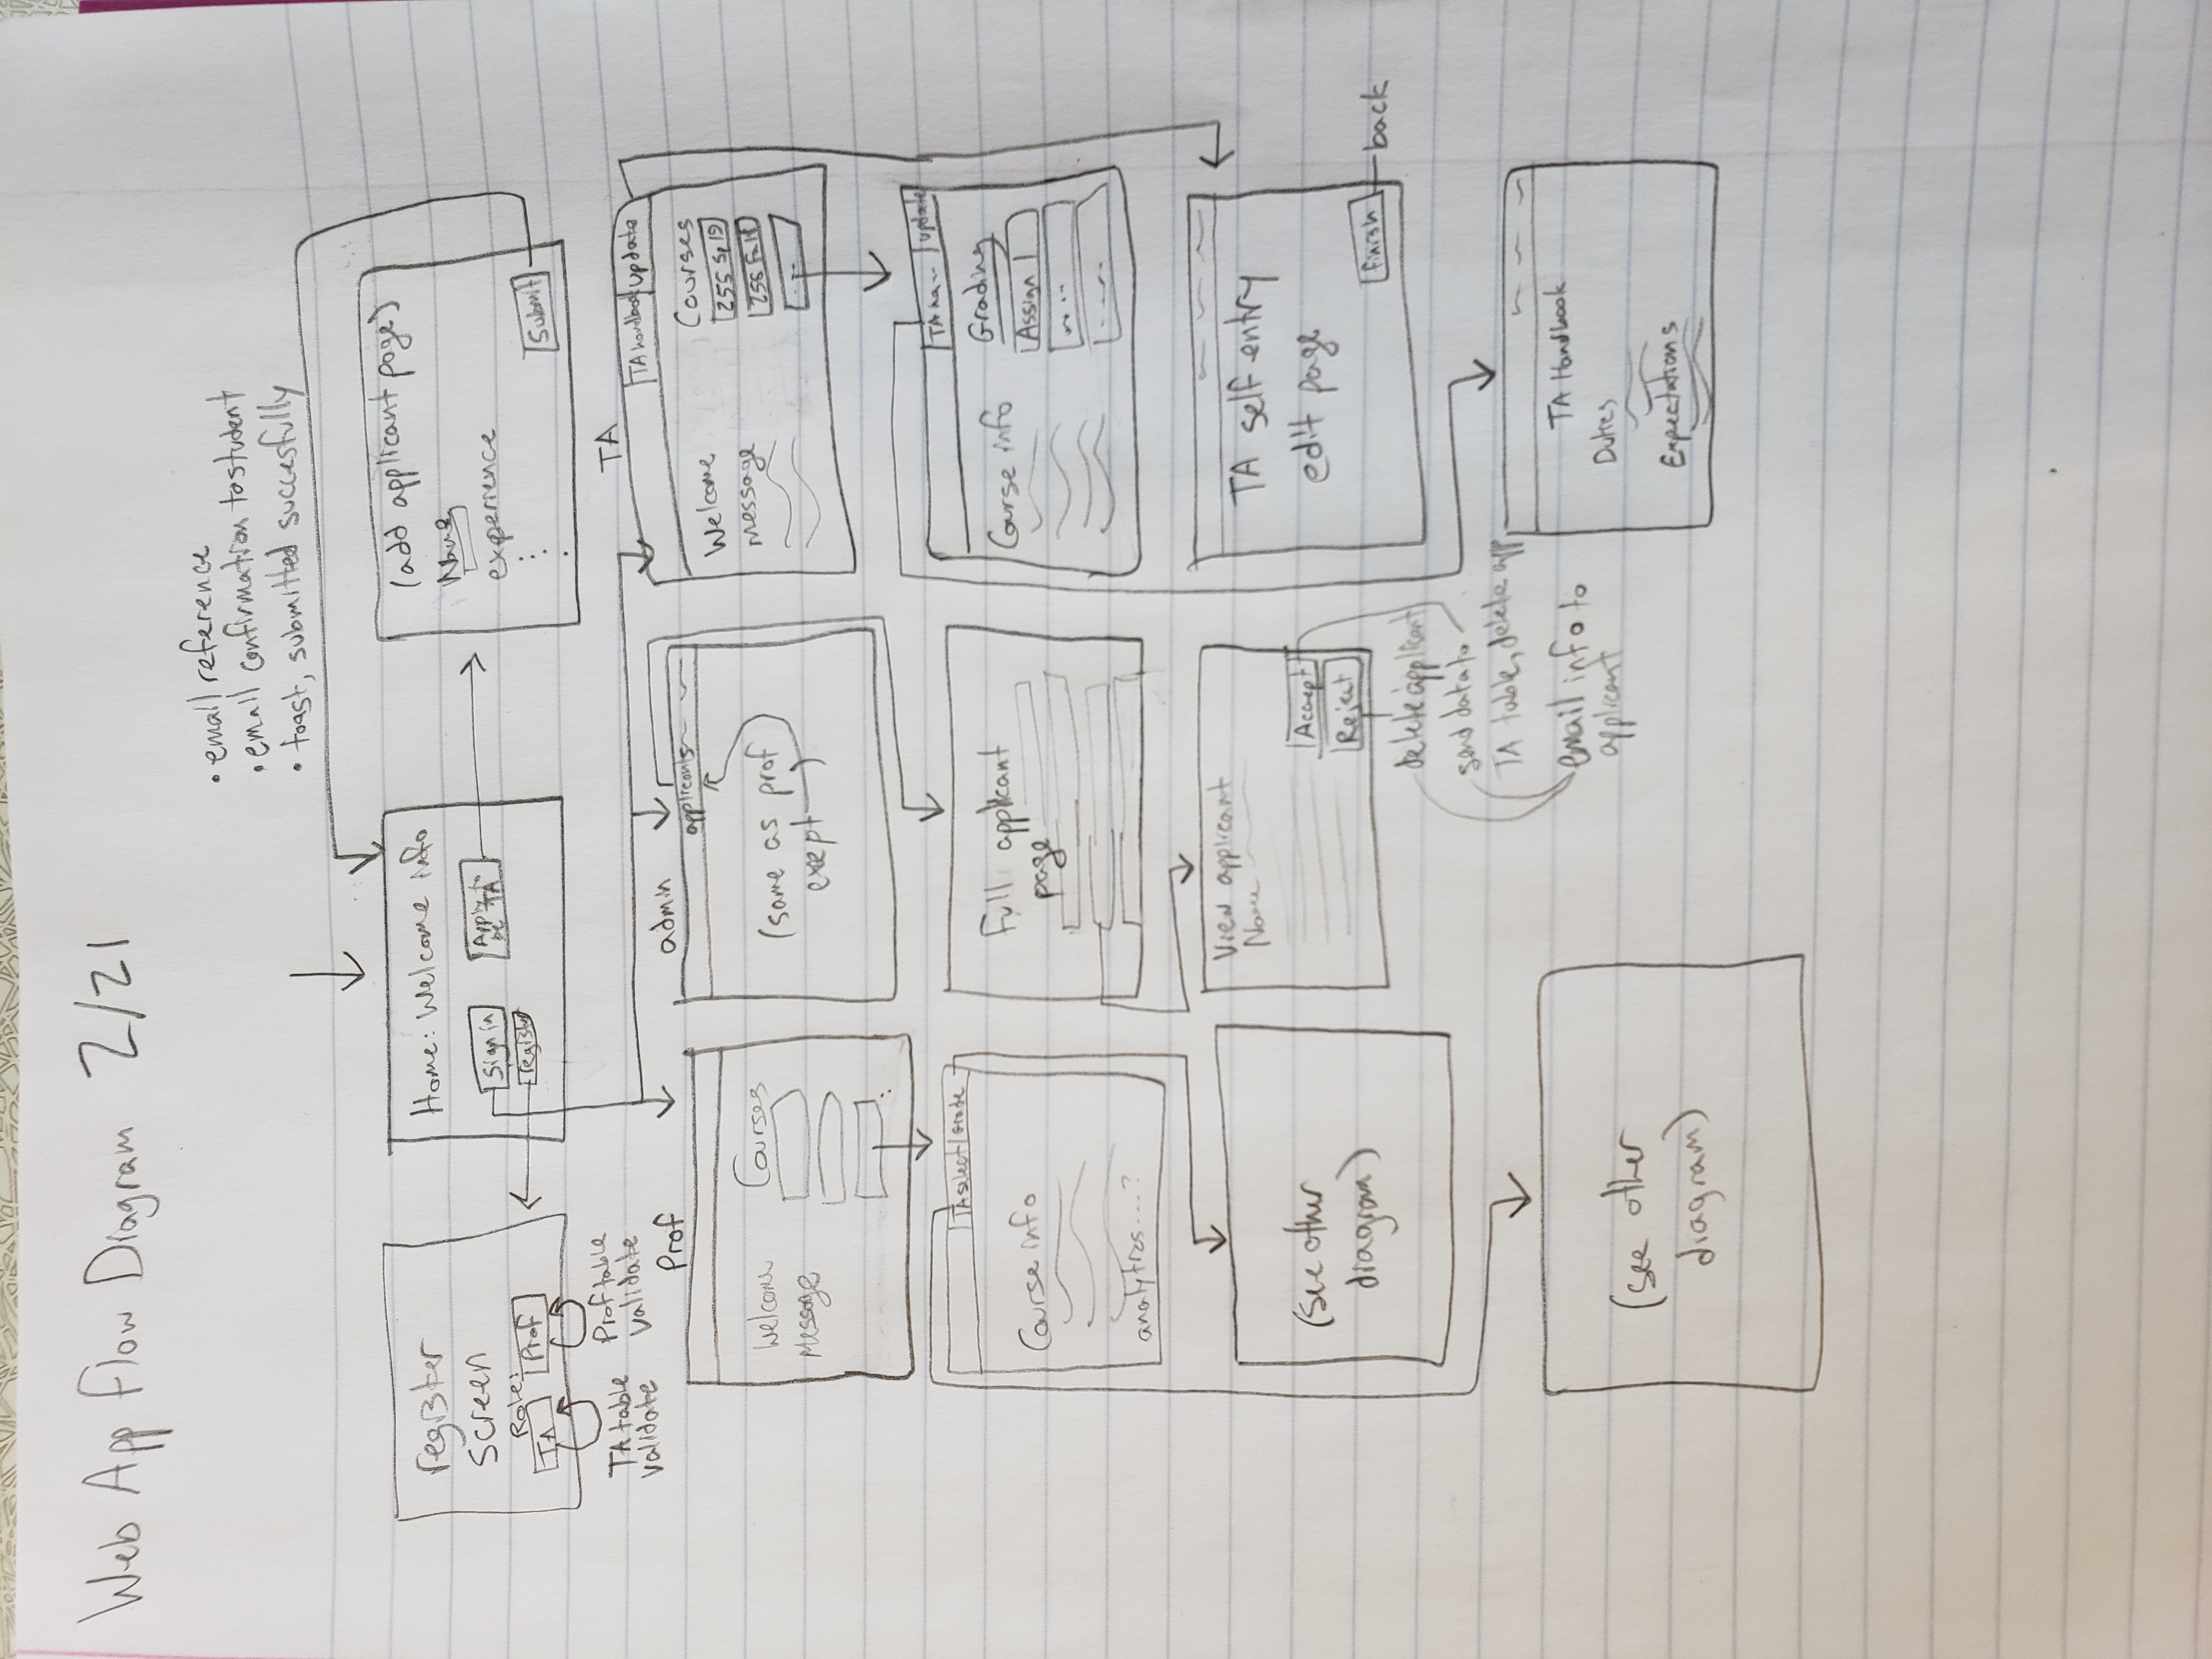 Web App Flow Diagram 2/21
• email reference
• email confirmation to student
• toast, submitted succesfully
register
screen
Role:
TA
Prof
TA table
validate
Prof table
validate
Home: Welcome info
Sign in
Apply to
be TA
register
(add applicant page)
Name
experience
Submit
Prof
Welcome
Message
Courses
admin
applicants
(same as prof
exept
TA
TA handbook
update
Welcome
message
Courses
255 Sp 19
255 Fa 18
...
TA select
Grade
Course info
analytics....?
Full applicant
page
TA ha...
update
Course info
Grading
Assign 1
(see other
diagram)
View applicant
Name
Accept
Reject
delete applicant
send data to
TA table, delete app
email info to
applicant
TA self entry
edit page
finish
back
(see other
diagram)
TA Handbook
Duties
Expectations